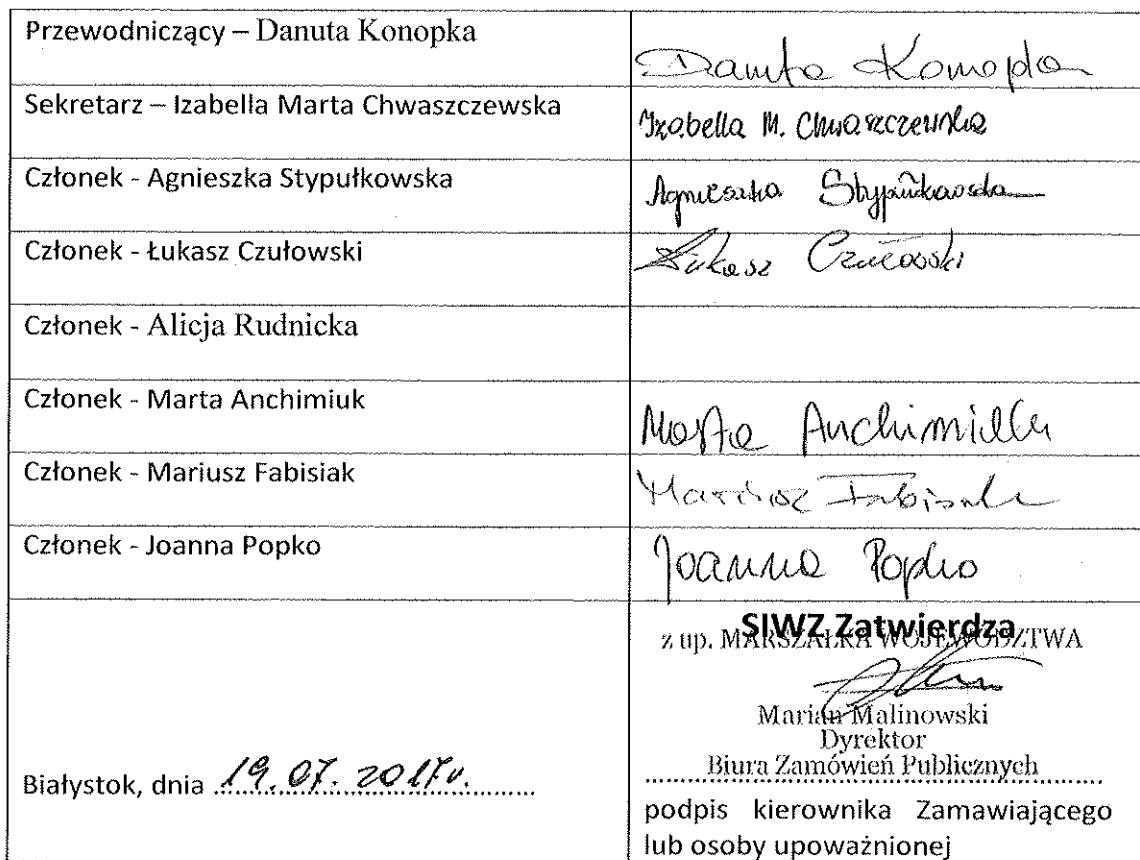 Przewodniczący – Danuta Konopka
Danuta Konopka
Sekretarz – Izabella Marta Chwaszczewska
Izabella M. Chwaszczewska
Członek - Agnieszka Stypułkowska
Agnieszka Stypułkowska
Członek - Łukasz Czułowski
Łukasz Czułowski
Członek - Alicja Rudnicka
Członek - Marta Anchimiuk
Marta Anchimiuk
Członek - Mariusz Fabisiak
Mariusz Fabisiak
Członek - Joanna Popko
Joanna Popko
SIWZ Zatwierdza
z up. MARSZAŁKA WOJEWÓDZTWA
Marian Malinowski
Dyrektor
Biura Zamówień Publicznych
Białystok, dnia 19.07.2017r.
podpis kierownika Zamawiającego
lub osoby upoważnionej